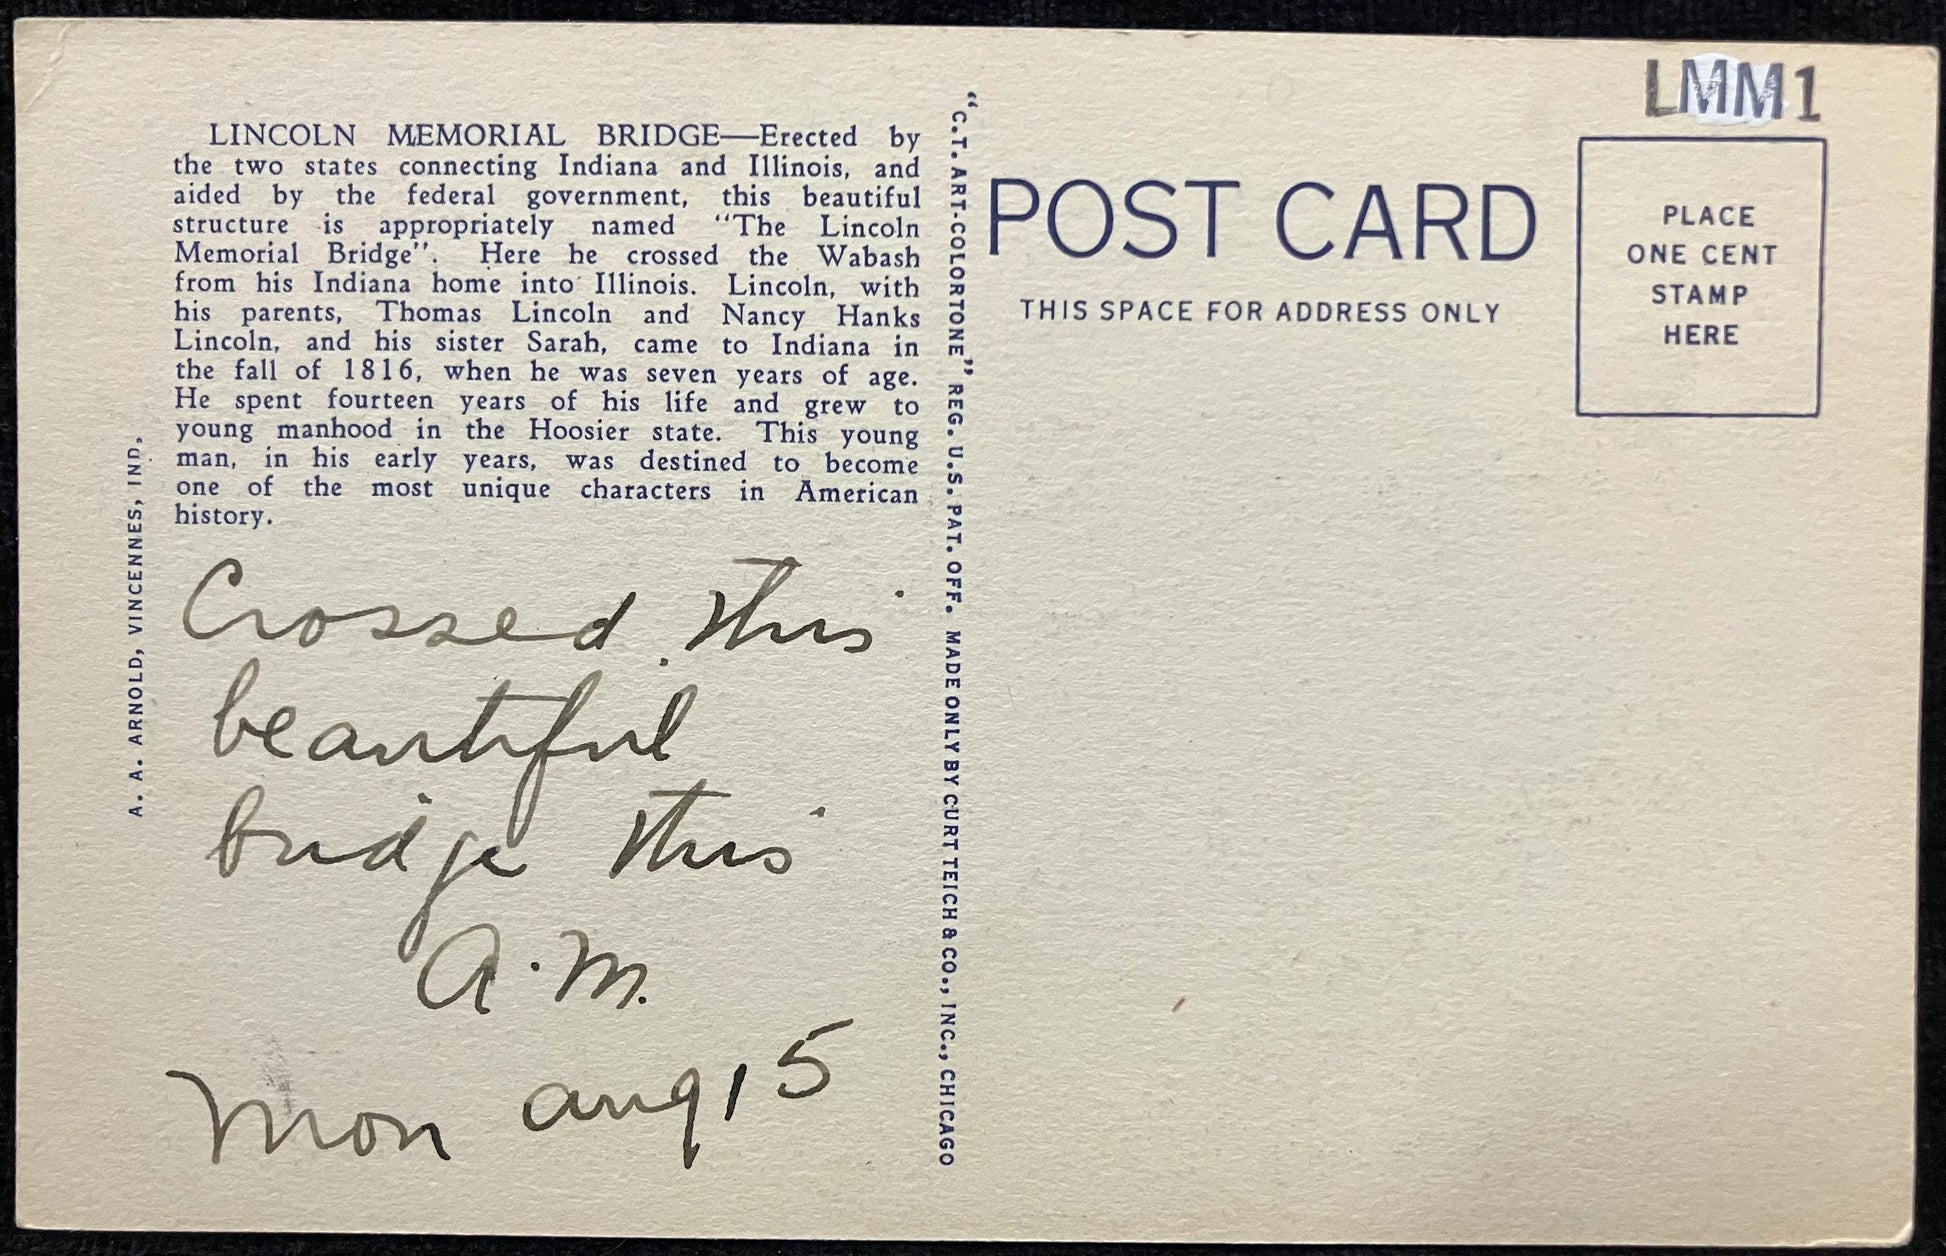 LMM1
LINCOLN MEMORIAL BRIDGE—Erected by
the two states connecting Indiana and Illinois, and
aided by the federal government, this beautiful
structure is appropriately named "The Lincoln
Memorial Bridge". Here he crossed the Wabash
from his Indiana home into Illinois. Lincoln, with
his parents, Thomas Lincoln and Nancy Hanks
Lincoln, and his sister Sarah, came to Indiana in
the fall of 1816, when he was seven years of age.
He spent fourteen years of his life and grew to
young manhood in the Hoosier state. This young
man, in his early years, was destined to become
one of the most unique characters in American
history.
A. A. ARNOLD, VINCENNES, IND.
Crossed this
beautiful
bridge this
A.M.
Mon Aug 15
"C.T. ART-COLORTONE" REG. U.S. PAT. OFF. MADE ONLY BY CURT TEICH & CO., INC., CHICAGO
POST CARD
THIS SPACE FOR ADDRESS ONLY
PLACE
ONE CENT
STAMP
HERE